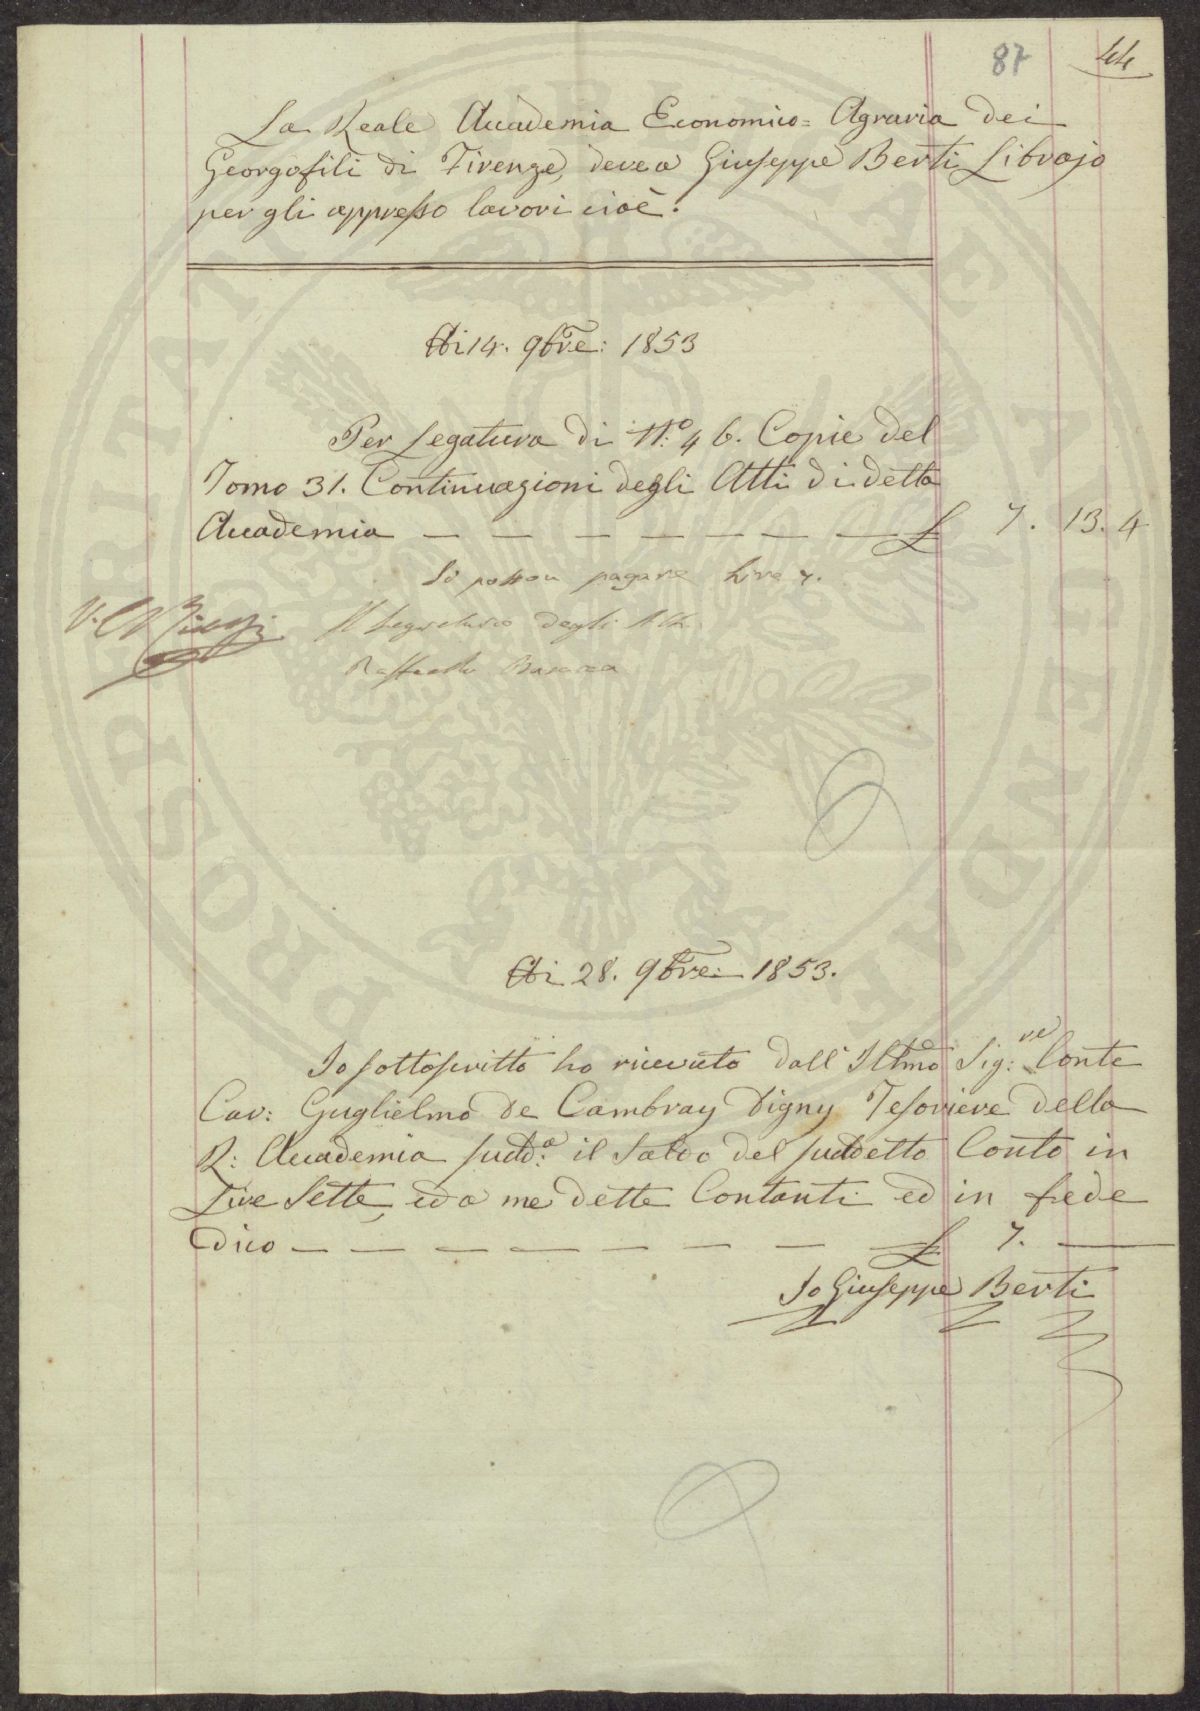 87 44
La Reale Accademia Economico= Agraria dei
Georgofili di Firenze, deve a Giuseppe Berti Librajo
per gli appresso lavori cioè.
Adi 14. 9bre: 1853
Per Legatura di N.º 46. Copie del
Tomo 31. Continuazioni degli Atti di detta
Accademia — — — — — — — £ 7. 13. 4
Si posson pagare Lire 7.
Il Segretario degli Atti
Raffaello
Adi 28. 9bre: 1853.
Io sottoscritto ho ricevuto dall' Illmo Sig:re Conte
Cav: Guglielmo de Cambray Digny Tesoriere della
R: Accademia sudd:a il Saldo del suddetto Conto in
Lire Sette, ed a me dette Contanti ed in fede
dico — — — — — — — — £ 7. —
Io Giuseppe Berti
PROSPERITATI PUBLICAE AUGENDAE